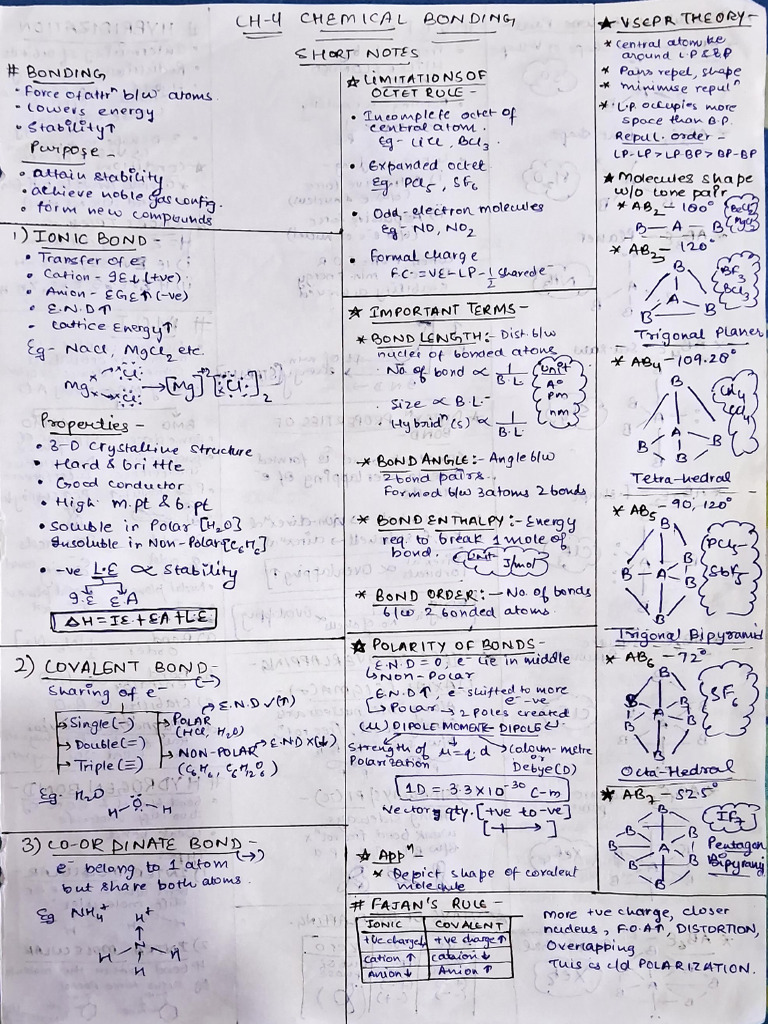 CH-4 CHEMICAL BONDING
SHORT NOTES
# BONDING
• Force of attrⁿ b/w atoms.
• Lowers energy
• Stability↑
Purpose -
• attain stability
• achieve noble gas config.
• form new compounds
1) IONIC BOND -
• Transfer of e⁻
• Cation - IE↓ (+ve)
• Anion - EGE↑ (-ve)
• E.N.D↑
• Lattice Energy↑
Eg - NaCl, MgCl₂ etc.
Mg Cl Cl → [Mg]⁺² [Cl]⁻₂
Properties -
• 3-D Crystalline structure
• Hard & brittle
• Good conductor
• High m.pt & b.pt
• Soluble in Polar [H₂O]
Insoluble in Non-Polar [C₆H₆]
• -ve L.E ∝ Stability
I.E E.A
ΔH = IE + EA + LE
2) COVALENT BOND -
(—)
Sharing of e⁻
→ Single (-)
→ Double (=)
→ Triple (≡)
→ POLAR → E.N.D ✓(↑)
(HCl, H₂O)
→ NON-POLAR → E.N.D X(↓)
(C₆H₆, C₆H₁₂O₆)
Eg - H₂O
H - O - H
3) CO-ORDINATE BOND -
(→)
e⁻ belong to 1 atom
but share both atoms.
Eg NH₄⁺
H⁺
N
H H
H
★ LIMITATIONS OF
OCTET RULE -
• Incomplete octet of
central atom.
Eg - LiCl, BCl₃.
• Expanded octet
Eg - PCl₅, SF₆
• Odd-electron molecules
Eg - NO, NO₂
• Formal charge
F.C. = VE - LP - 1/2 shared e⁻
★ IMPORTANT TERMS -
* BOND LENGTH:- Dist. b/w
nuclei of bonded atoms
• No. of bond ∝ 1/B.L.
Unit
A°
pm
nm
• Size ∝ B.L
• Hybridⁿ (s) ∝ 1/B.L
* BOND ANGLE:- Angle b/w
2 bond pairs.
Formed b/w 3 atoms 2 bonds
* BOND ENTHALPY:- Energy
req. to break 1 mole of
bond. Unit J/mol
* BOND ORDER:- No. of bonds
b/w 2 bonded atoms.
★ POLARITY OF BONDS -
E.N.D = 0, e⁻ lie in middle
↳ Non-Polar
E.N.D↑, e⁻ shifted to more
e⁻ -ve
↳ Polar → 2 Poles created
(μ) DIPOLE MOMENT DIPOLE
Strength of
Polarization
μ = q.d → Coloum-metre
or
Debye(D)
1D = 3.3 X 10⁻³⁰ C-m
Vector qty. [+ve to -ve]
★ Appⁿ
* Depict shape of covalent
molecule
# FAJAN'S RULE -
IONIC COVALENT
+ve charge↓ +ve charge↑
cation↑ cation↓
Anion↓ Anion↑
More +ve charge, closer
nucleus, F.O.A↑, DISTORTION,
Overlapping
This is c/d POLARIZATION.
★ VSEPR THEORY -
* Central atom, be
around L.P & B.P
* Pairs repel, shape
* minimise repulⁿ
* L.P. occupies more
space than B.P.
Repul. order -
LP-LP > LP-BP > BP-BP
★ Molecules shape
w/o lone pair
* AB₂ - 180°
BeCl₂
MgCl₂
B - A - B
* AB₃ - 120°
B
A
B B
BF₃
BCl₃
Trigonal Planer
* AB₄ - 109.28°
B
A
B B B
CH₄
CCl₄
Tetra-hedral
* AB₅ - 90, 120°
B
B A B
B
B
PCl₅
SbF₅
Trigonal Bipyramid
* AB₆ - 72°
B
B B
A
B B
B
SF₆
Octa-Hedral
★ AB₇ - 52.5°
B
B B
A
B B
B
B
IF₇
Pentagon
Bipyramid